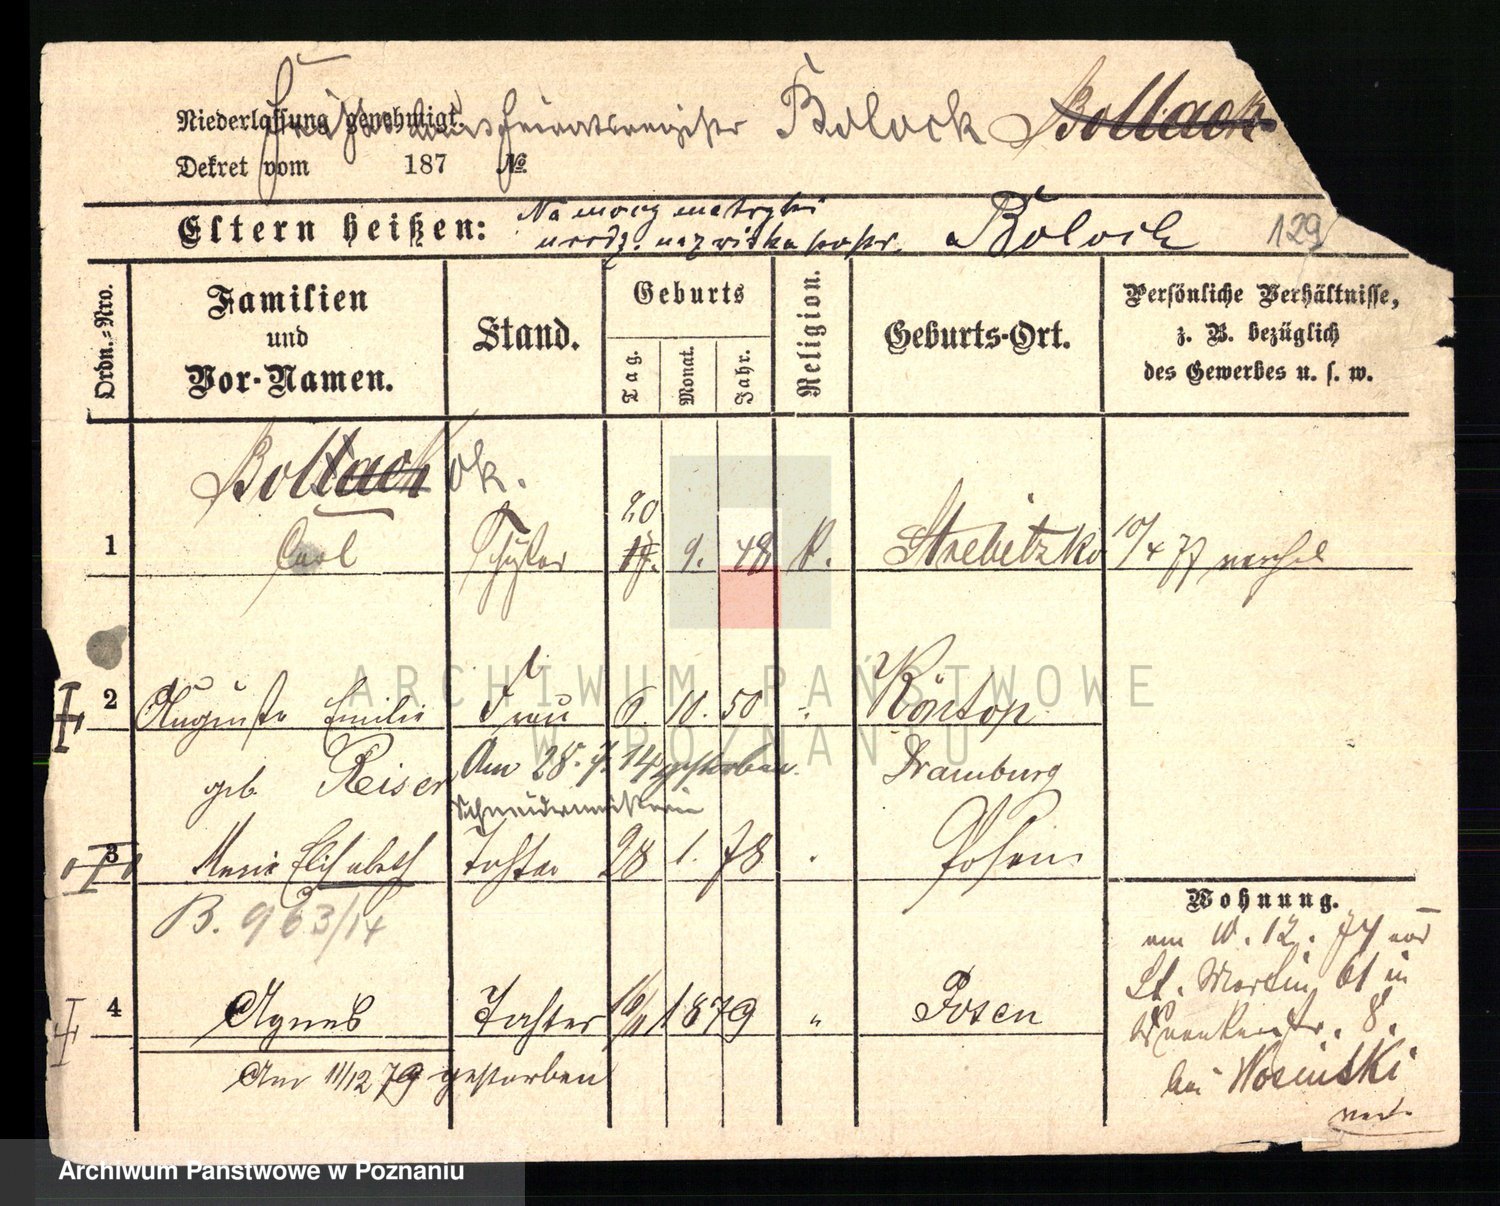 Niederlassung genehmigt
Heiratsregister Bolock Bollack
Dekret vom 187 №
Eltern heißen: Na mocy metryki
urodz. nazwiska popr. Bolock 129
Ordn.-Nro.
Familien
und
Vor-Namen.
Stand.
Geburts
Tag.
Monat.
Jahr.
Religion.
Geburts-Ort.
Persönliche Verhältnisse,
z. B. bezüglich
des Gewerbes u. s. w.
Bollack ok.
20
1 Carl 9. 48 k. Strebitzko 10/4 77
2 Auguste Emilie Frau 6. 10. 50 Köntop
geb Reiser Am 28.7.14 gestorben. Dramburg
Schneidermeisterin
3 Marie Elisabeth Tochter 28 1. 78 Posen
B. 963/14
Wohnung.
am 10. 12. 77
St. Martin 61 in
4 Agnes Tochter 16/11 1879 " Posen
8.
bei Wosinski
Am 11/12 79 gestorben
ARCHIWUM PAŃSTWOWE
W POZNANIU
Archiwum Państwowe w Poznaniu